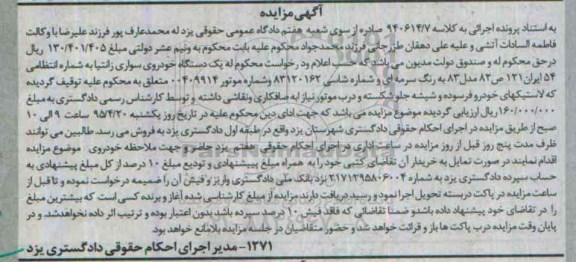 آگهی مزایده
به استناد پرونده اجرائی به کلاسه ۹۴۰۶۱۴/۷ صادره از سوی شعبه هفتم دادگاه عمومی حقوقی یزد له محمدعارف پور فرزند علیرضا با وکالت
فاطمه السادات آتشی و علیه علی دهقان طزرجانی فرزند محمدجواد محکوم علیه بابت محکوم به ونیم عشر دولتی مبلغ ۱۳۰/۴۰۱/۴۰۵ ریال
در حق محکوم له و صندوق دولت مدیون می باشد که حسب اعلام ودر خواست محکوم له یک دستگاه خودروی سواری زانتیا به شماره انتظامی
۵۴ ایران ۱۲۱ ص ۸۳ مدل ۸۳ به رنگ سرمه ای و شماره شاسی ۸۳۱۲۰۱۶۲ وشماره موتور ۰۰۴۰۹۹۱۴ متعلق به محکوم علیه توقیف گردیده
که لاستیکهای خودرو فرسوده و شیشه جلو شکسته و درب موتور نیاز به صافکاری ونقاشی داشته و توسط کارشناس رسمی دادگستری به مبلغ
۱۶۰/۰۰۰/۰۰۰ ریال ارزیابی گردیده موضوع مزایده می باشد که جهت ادای دین محکوم علیه در تاریخ روز یکشنبه ۹۵/۴/۲۰ ساعت ۹ الی ۱۰
صبح از طریق مزایده در اجرای احکام حقوقی دادگستری شهرستان یزد واقع در طبقه اول دادگستری یزد به فروش می رسد. طالبین می توانند
ظرف مدت پنج روز قبل از روز مزایده در ساعت اداری در اجرای احکام حقوقی هفتم یزد حاضر و جهت ملاحظه خودروی موضوع مزایده
اقدام نمایند در صورت تمایل به خریدار آن تقاضای کتبی خود را به همراه مبلغ پیشنهادی و تودیع مبلغ ۱۰ درصد از کل مبلغ پیشنهادی به
حساب سپرده دادگستری یزد به شماره ۲۱۷۱۲۹۵۸۰۶۰۰۴ نزد بانک ملی دادگستری واریز و فیش آن را ضمیمه درخواست نموده و تا قبل از
ساعت مزایده در پاکت دربسته تحویل اجرا نمود و رسید دریافت دارند مزایده از مبلغ کارشناسی شده آغاز و برنده کسی است که بیشترین مبلغ
را در تقاضای خود پیشنهاد داده باشد و ضمنا تقاضائی که فاقد فیش ۱۰ درصد سپرده باشد بدون اعتبار بوده و ترتیب اثر داده نخواهد شد. و در
پایان وقت مزایده درب پاکت ها باز و قرائت خواهد شد و حضور متقاضیان در جلسه مزایده بلامانع خواهد بود.
۱۲۷۱- مدیر اجرای احکام حقوقی دادگستری یزد